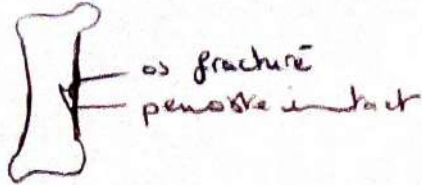 os fracturé
périoste intact